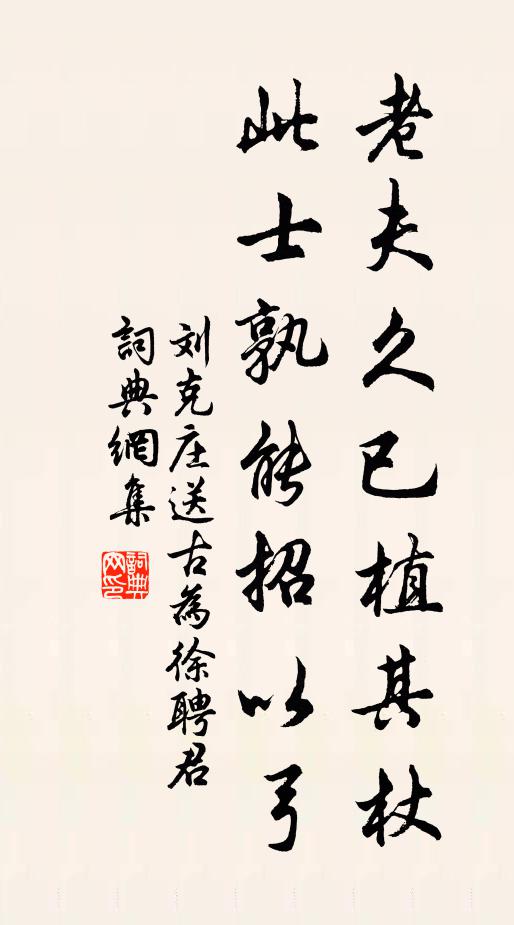 老夫久已植其杖
此士孰能招以弓
刘克庄送古為徐聘君
詞典網集
詞典网印